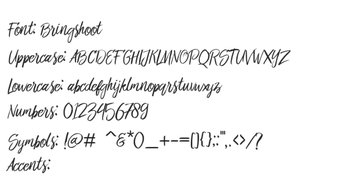 Font: Bringshoot
Uppercase: ABCDEFGHIJKLMNOPQRSTUVWXYZ
Lowercase: abcdefghijklmnopqrstuvwxyz
Numbers: 0123456789
Symbols: !@# ^&*()_+-=[]{};:'",.<>/?
Accents: